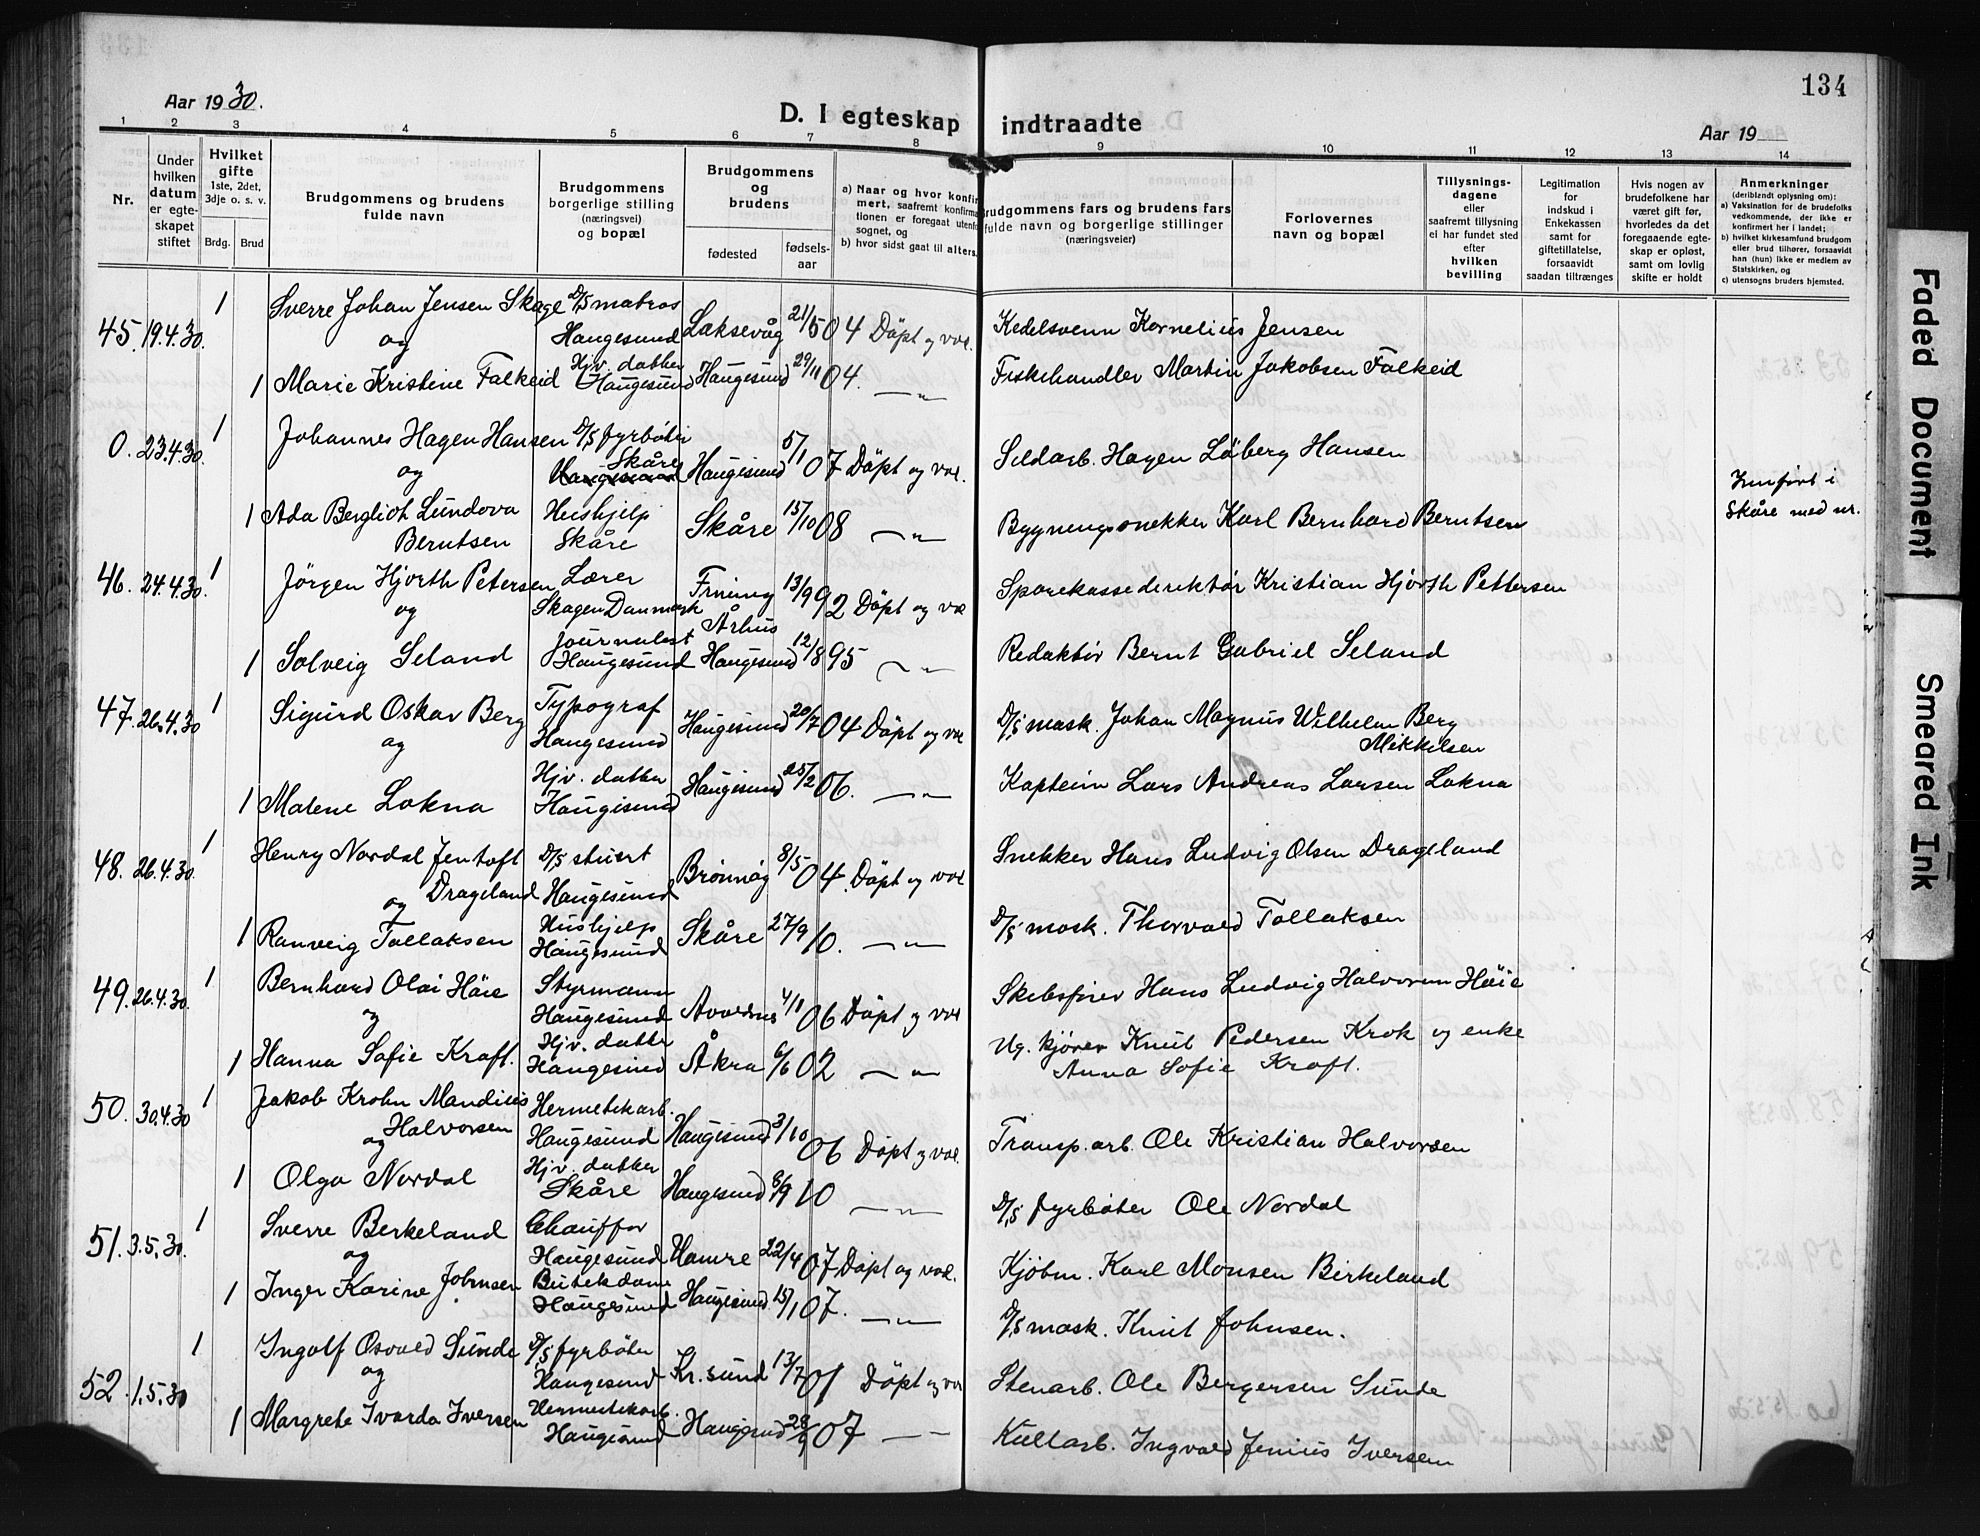 134
Aar 1930.
D. I egteskap indtraadte
Aar 19
1 2 3 4 5 6 7 8 9 10 11 12 13 14
Nr.
Under hvilken datum er egteskapet stiftet
Hvilket gifte 1ste, 2det, 3dje o. s. v.
Brdg. Brud
Brudgommens og brudens fulde navn
Brudgommens borgerlige stilling (næringsvei) og bopæl
Brudgommens og brudens
fødested fødselsaar
a) Naar og hvor konfirmert, saafremt konfirmationen er foregaat utenfor sognet, og
b) hvor sidst gaat til alters.
Brudgommens fars og brudens fars fulde navn og borgerlige stillinger (næringsveier)
Forlovernes navn og bopæl
Tillysningsdagene eller saafremt tillysning ei har fundet sted efter hvilken bevilling
Legitimation for indskud i Enkekassen samt for giftetillatelse, forsaavidt saadan tiltrænges
Hvis nogen av brudefolkene har været gift før, hvorledes da det foregaaende egteskap er opløst, samt om lovlig skifte er holdt
Anmerkninger (deriblandt oplysning om):
a) Vaksination for de brudefolks vedkommende, der ikke er konfirmert her i landet;
b) hvilket kirkesamfund brudgom eller brud tilhører, forsaavidt han (hun) ikke er medlem av Statskirken, og
c) utensogns bruders hjemsted.
45. 19.4.30. 1 Sverre Johan Jensen Skage D/S matros Haugesund Laksevåg 21/5 04 Döpt og vac. Kedelsvenn Kornelius Jensen
og
1 Marie Kristine Falkeid Hjv. datter Haugesund Haugesund 29/11 04. —„— Fiskehandler Martin Jakobsen Falkeid
0. 23.4.30. 1 Johannes Hagen Hansen D/S fyrböter Skåre Haugesund Haugesund 5/1 07 Döpt og vac. Sildarb. Hagen Löberg Hansen
og
1 Ada Bergliot Lundova Berntsen Hushjelp Skåre Skåre 15/10 08 —„— Bygningssnekker Karl Bernhard Berntsen
Innført i Skåre med nr.
46. 24.4.30. 1 Jörgen Hjorth Petersen Lærer Skagen Danmark Århus 13/9 92 Döpt og vac Sparekassedirektör Kristian Hjorth Pettersen
og
1 Solveig Seland Journalist Haugesund Haugesund 12/8 95 —„— Redaktör Bernt Gabriel Seland
47. 26.4.30 1 Sigurd Oskar Berg Typograf Haugesund Haugesund 20/7 04 Döpt og vac D/S mask. Johan Magnus Wilhelm Berg Mikkelsen
og
1 Malene Lokna Hjv. datter Haugesund Haugesund 25/2 06. —„— Kaptein Lars Andreas Larsen Lokna
48. 26.4.30. 1 Henry Nordal Jentoft Drageland D/S stuert Haugesund Brönnöy 8/5 04. Döpt og vac Snekker Hans Ludvig Olsen Drageland
og
1 Ranveig Tollaksen Hushjelp Haugesund Skåre 27/9 10. —„— D/S mask. Thorvald Tollaksen
49. 26.4.30. 1 Bernhard Olai Höie Styrmann Haugesund Avaldsnes 4/1 06 Döpt og vac Skibsförer Hans Ludvig Halvorsen Höie
og
1 Hanna Sofie Kraft. Hjv. datter Haugesund Åkra 6/6 02 —„— Ug. kjörer Knut Pedersen Krok og enke Anna Sofie Kraft.
50. 30.4.30 1 Jakob Krohn Mandius Halvorsen Hermetikarb. Haugesund Haugesund 3/10 06 Döpt og vac. Transp.arb. Ole Kristian Halvorsen
og
1 Olga Nordal Hjv. datter Skåre Haugesund 8/9 10 —„— D/S fyrböter Ole Nordal
51. 3.5.30. 1 Sverre Berkeland Chauffør Haugesund Hamre 22/4 07 Döpt og vac. Kjöbm. Karl Monsen Birkeland
og
1 Inger Karine Johnsen Butikdame Haugesund Haugesund 15/1 07. —„— D/S mask. Knut Johnsen.
52. 1.5.30 1 Ingolf Osvald Sunde D/S fyrböter Haugesund Kr.sund 13/7 01 Döpt og vac Stenarb. Ole Bergersen Sunde
og
1 Margrete Ivarda Iversen Hermetikarb. Haugesund Haugesund 28/9 07 —„— Kullarb. Ingvald Jenius Iversen
Faded Document
Smeared Ink